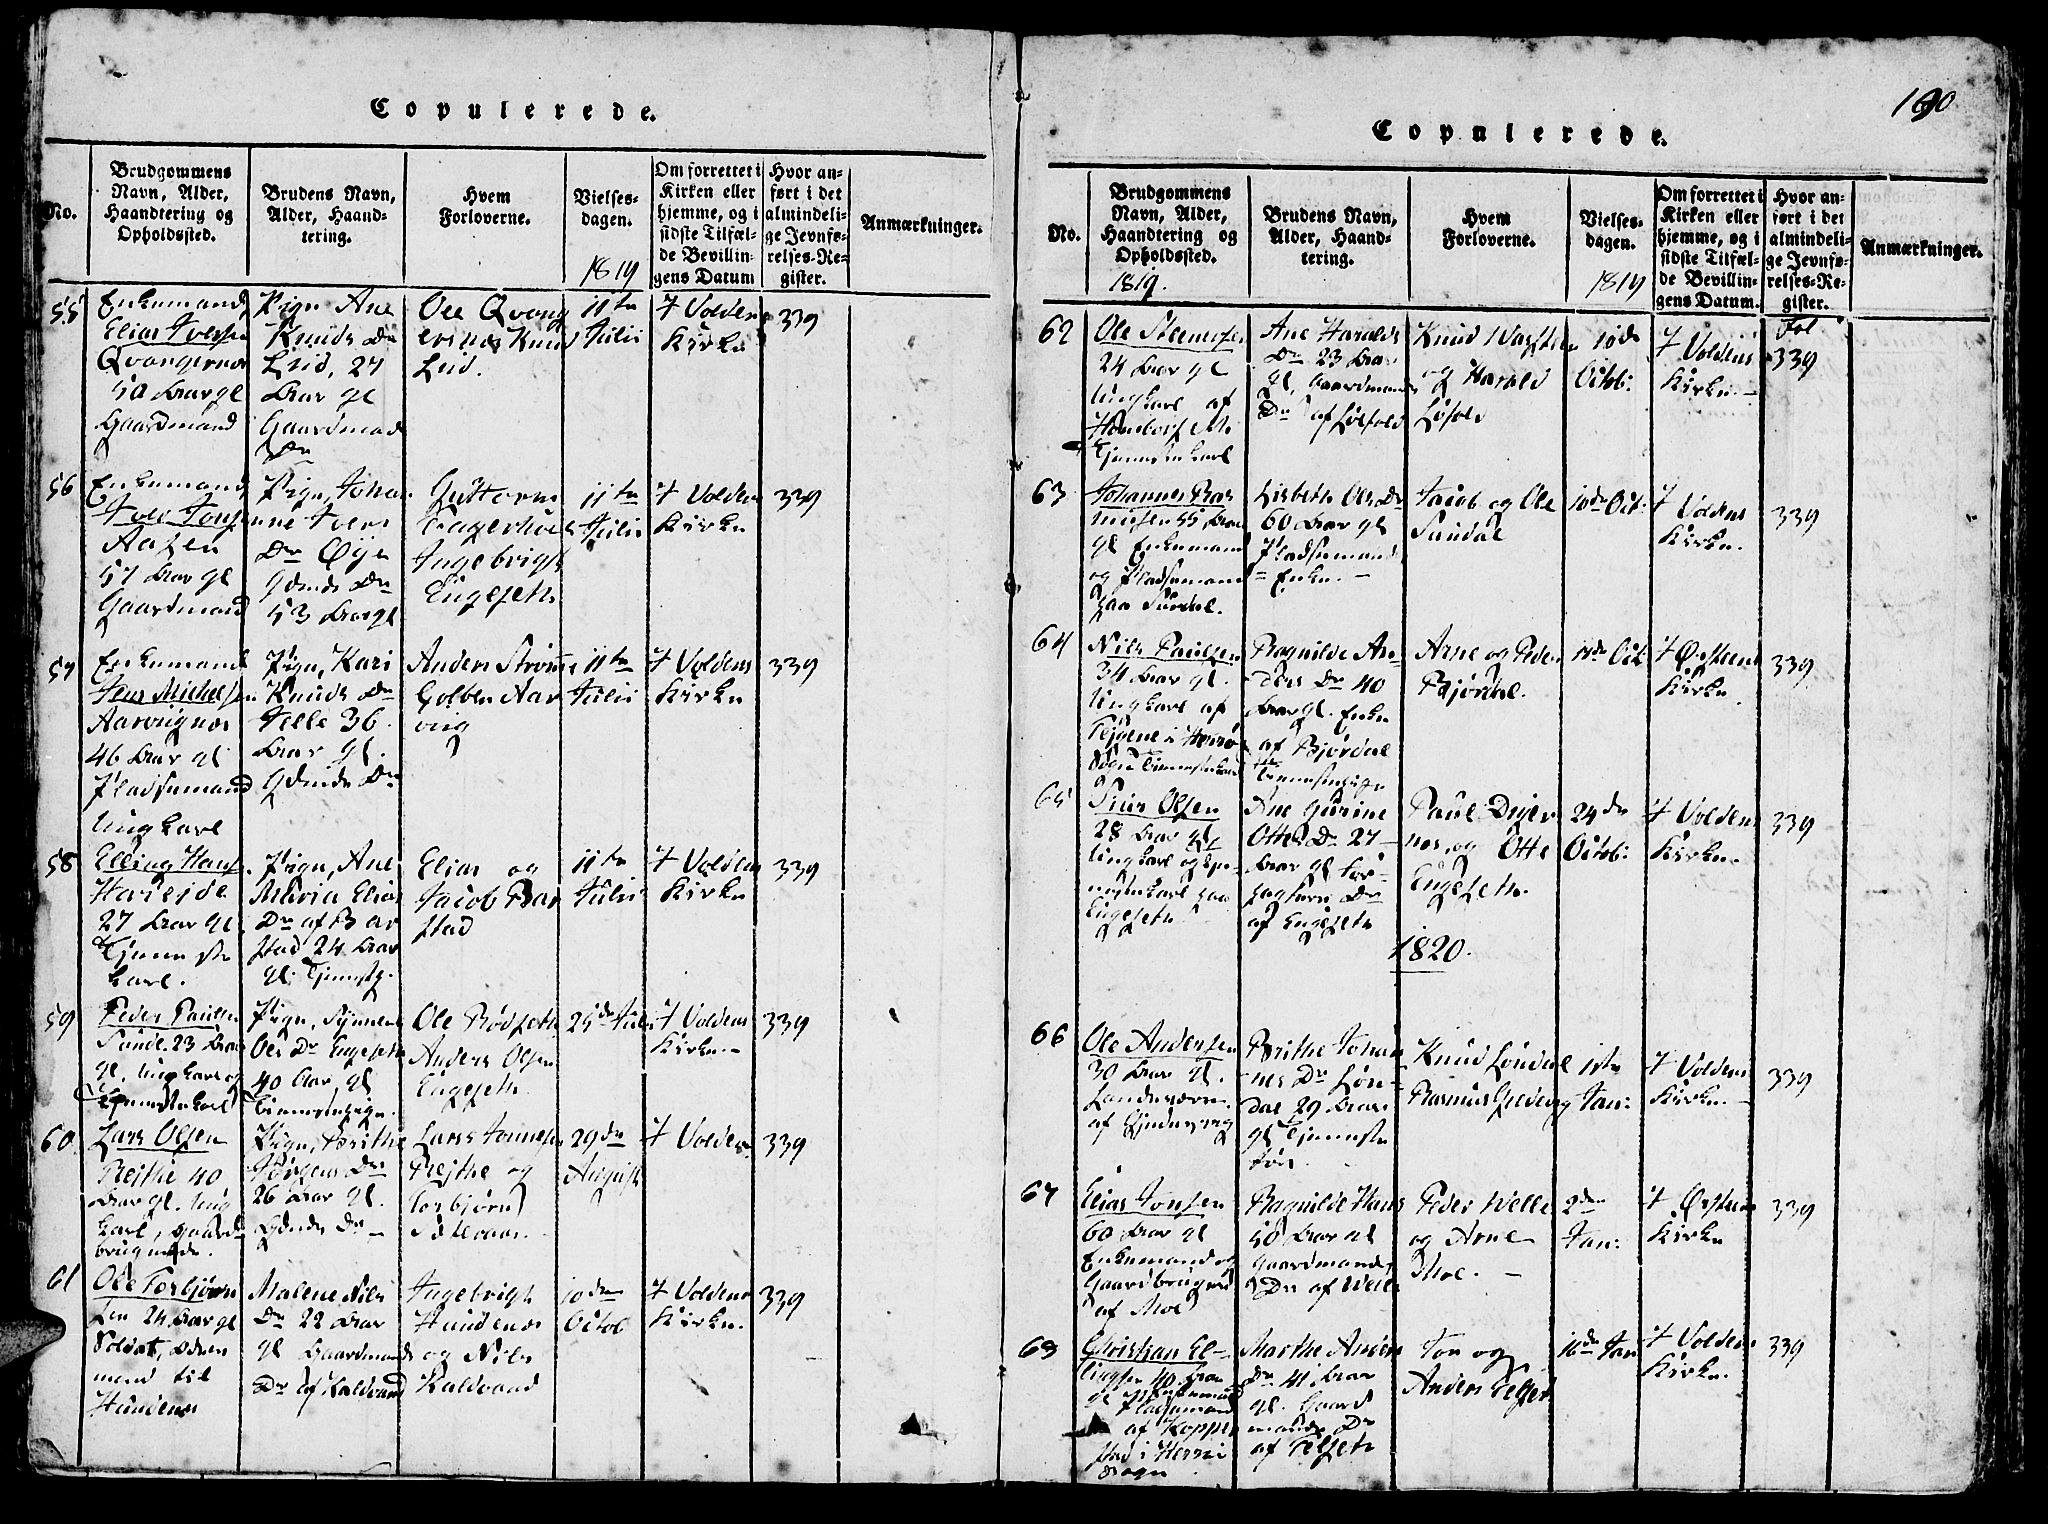 Copulerede.
No.
Brudgommens Navn, Alder, Haandtering og Opholdssted.
Brudens Navn, Alder, Haandtering.
Hvem Forloverne.
Vielsesdagen.
1819
Om forrettet i Kirken eller hjemme, og i sidste Tilfælde Bevillingens Datum
Hvor anført i det almindelige Jevnførelses-Register.
Anmærkninger.
55
Enkemand
Elias Iversen
Qvangernæs
50 Aar gl
Gaardmand
Pige, Ane
Knuds Dr
Leid, 27
Aar gl
Gaardmads
Dr
Ole Qvang
ernæs Knud
Leid.
11te
Julii
i Voldens
Kirke
339
56
Enkemand
Aasen
57 Aar gl
Gaardmand
Pige, Johan
ne Ivers
Dr Øye
Gdmds Dr
53 Aar gl
Guttorm
Ingebrigt
Engeseth
11te
Julii
i Voldens
Kirke
339
57
Enkemand
Jens Michelsen
Aarvignæs
46 Aar gl
Pladsemand
Pige, Kari
Knuds Dr
Velle 36
Aar gl.
Gdmds Dr
Anders Strøm
Golben Aar
vig
11te
Julii
i Voldens
Kirke
339
Ungkarl
58
Elling Hans.
Hareide
27 Aar gl.
Tjeneste
karl.
Pige, Ane
Maria Elias
Dr af Bar
stad 24 Aar
gl. Tjenestp.
Elias og
Jacob Bar
stad
11te
Julii
i Voldens
Kirke
339
59
Peder Paulsen
Sunde 23 Aar
gl. Ungkarl og
Tjenestekarl
Pige, Synneve
Ols Dr Engeseth
40 Aar gl
Tjenestepige.
Ole Rødseth
Anders Olsen
Engeseth
25de Julii
i Voldens
Kirke.
339
60
Lars Olsen
Rejthe 40
Aar gl. Ung
karl, Gaard
brugende.
Pige, Brithe
Jørgens Dr
26 Aar gl.
Gdmds Dr
Lars Jonnesen
Rejthe og
Torbjørn
29de
August
i Volden
339
61
Ole Torbjørn
sen 24 Aar gl
Soldat,
mand til
Hundenæs
Malene Nils
Dr 22 Aar
gl Gaardmands
Dr af Kaldvand
Ingebrigt
Hundenæs
og Nils
Kaldvand
10de
Octob
i Voldens
Kirke.
339
190
Copulerede.
No.
Brudgommens Navn, Alder, Haandtering og Opholdssted.
1819.
Brudens Navn, Alder, Haandtering.
Hvem Forloverne.
Vielsesdagen.
1819
Om forrettet i Kirken eller hjemme, og i sidste Tilfælde Bevillingens Datum.
Hvor anført i det almindelige Jevnførelses-Register.
Anmærkninger.
62
Ole Steensen
24 Aar gl
Ungkarl af
Tjenestekarl
Ane Haralds
Dr 23 Aar
gl. Gaardmands
Dr af Løfold
Knud
og Harald
Løfold
10de
Octob:
i Voldens
Kirke.
Fol
339
63
Johannes Ras
musen 55 Aar
gl Enkemand
og Pladsemand
paa Sundal.
Lisbeth Ols Dr
60 Aar gl
Pladsemands
Enke.
Jacob og Ole
Sundal
10de Oct:
i Voldens
Kirke.
339
64
Nils Paulsen
34 Aar gl.
Ungkarl af
Sogn Tjenestekarl
Ragnilde An
ders Dr 40
Aar gl. Enke
af Bjørdal
Tjenestepige
Arne og Peder
Bjørdal.
17de Oct
i Ørstens
Kirke
339
65
Siur Olsen
28 Aar gl
Ungkarl og Tje
nestekarl paa
Engeseth
Ane Gurine
Ottes Dr 27
Aar gl For
pagters Dr
af Engeseth
Paul Digernæs,
og Otte
Engeseth.
24de
Octob:
i Voldens
Kirke.
339
1820.
66
Ole Andersen
30 Aar gl.
Landeværn
Brithe Johan
nes Dr Løn
dal 29 Aar
gl Tjeneste
tøs.
Knud Løndal
Rasmus
1ste
Jan:
i Voldens
Kirke.
339
67
Elias Jonsen
60 Aar gl
Enkemand og
Gaardbruger
af Moe
Ragnilde Hans
50 Aar gl
Gaardmands
Dr af Welle
Peder Welle
og Arne
Moe.
2den
Jan:
i Ørstens
Kirke
339
68
Christian El
lingsen 40 Aar
gl
Pladsemand
af Koppe
stad i
Sogn
Marthe Anders
Dr 41 Aar
gl. Gaard
mands Dr
af Felseth
Jon og
Anders Felset
16de Jan
i Voldens
Kirke.
339